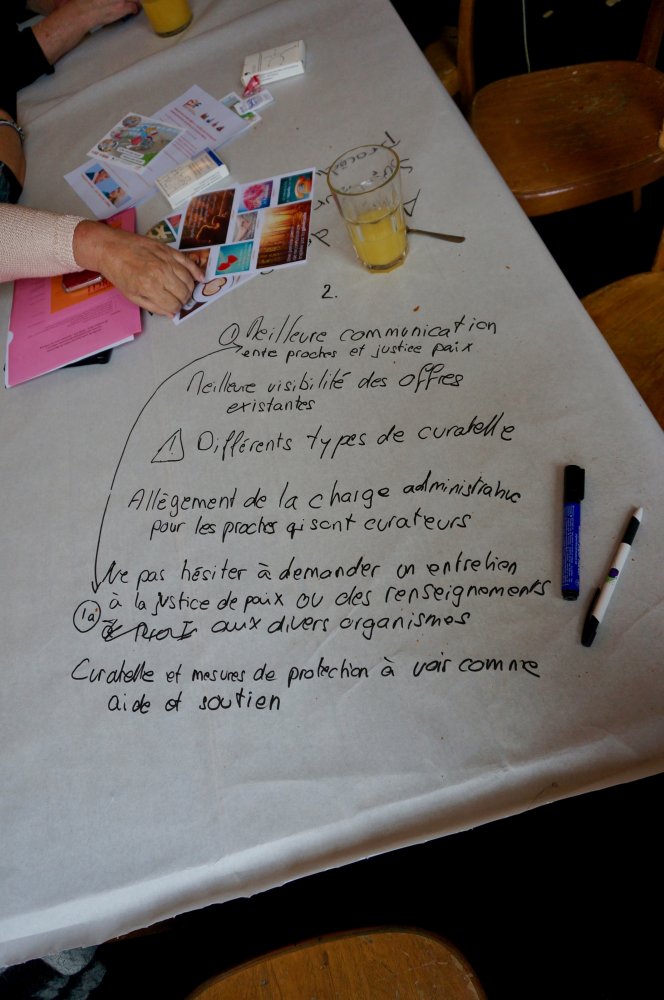 2.
① Meilleure communication
entre proches et justice paix
Meilleure visibilité des offres
existantes
Différents types de curatelle
Allègement de la charge administrative
pour les proches qi sont curateurs
Ne pas hésiter à demander un entretien
à la justice de paix ou des renseignements
1a aux divers organismes
Curatelle et mesures de protection à voir comme
aide et soutien